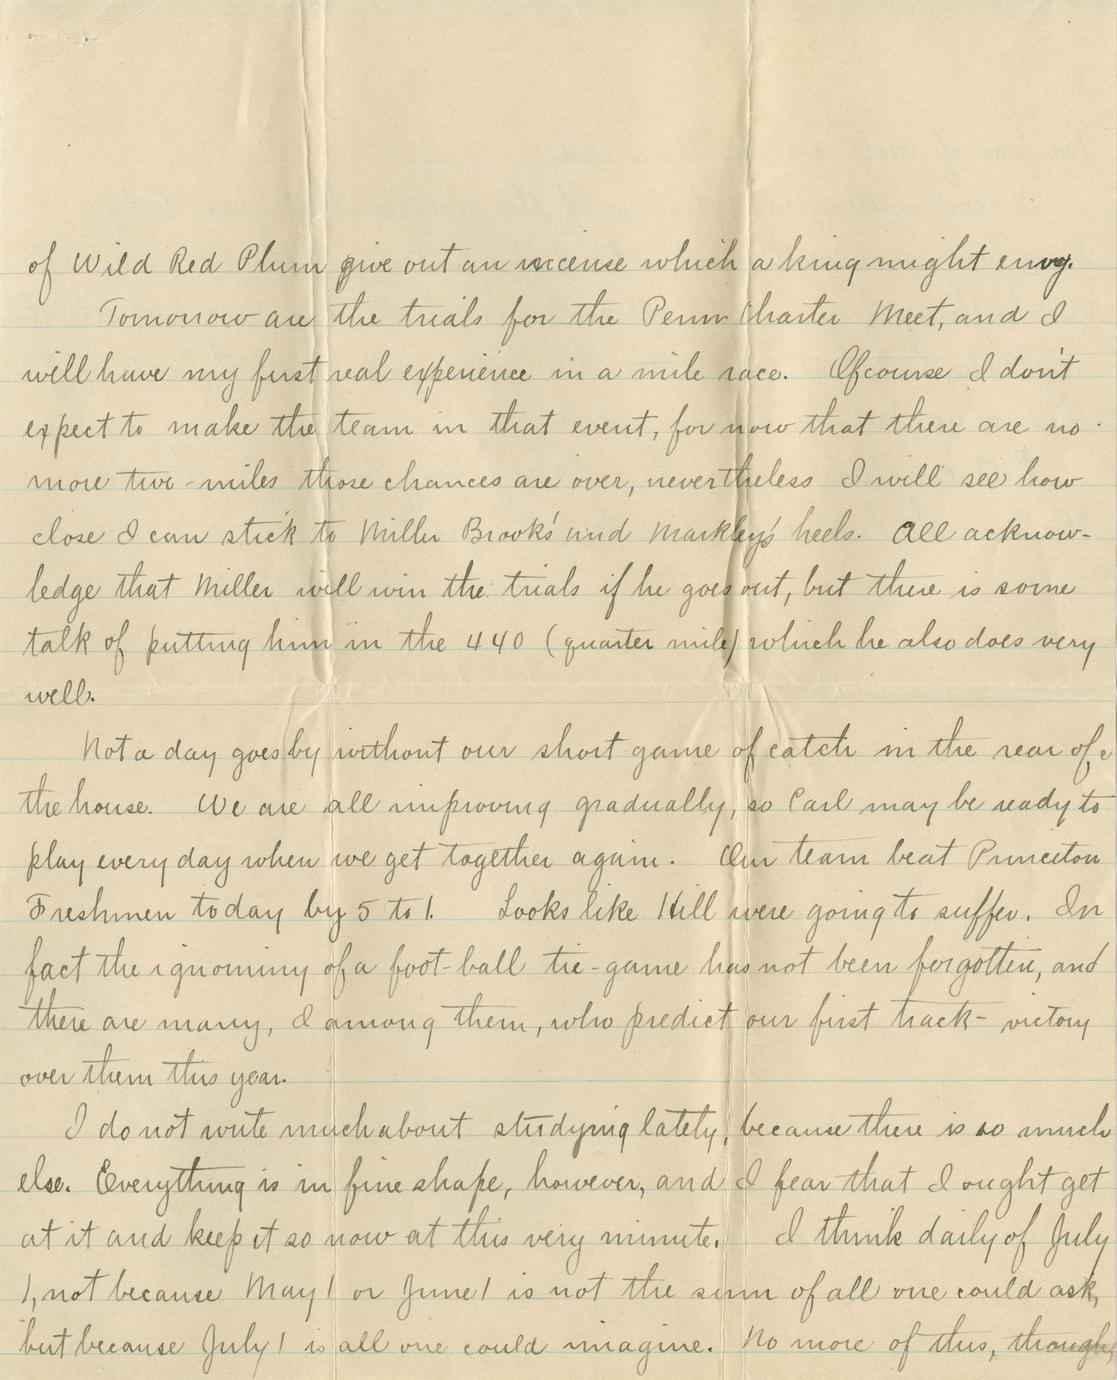 of Wild Red Plum give out an incense which a king might envy.
Tomorrow are the trials for the Penn Charter Meet, and I
will have my first real experience in a mile race. Ofcourse I don't
expect to make the team in that event, for now that there are no
more two-miles those chances are over, nevertheless I will see how
close I can stick to Miller Brook's and Markley's heels. All acknow-
ledge that Miller will win the trials if he goes out, but there is some
talk of putting him in the 440 (quarter mile) which he also does very
well.
Not a day goes by without our short game of catch in the rear of
the house. We are all improving gradually, so Carl may be ready to
play every day when we get together again. Our team beat Princeton
Freshmen today by 5 to 1. Looks like Hill were going to suffer. In
fact the ignominy of a foot-ball tie-game has not been forgotten, and
there are many, I among them, who predict our first track- victory
over them this year.
I do not write much about studying lately, because there is so much
else. Everything is in fine shape, however, and I fear that I ought get
at it and keep it so now at this very minute. I think daily of July
1, not because May 1 or June 1 is not the sum of all one could ask,
but because July 1 is all one could imagine. No more of this, though,